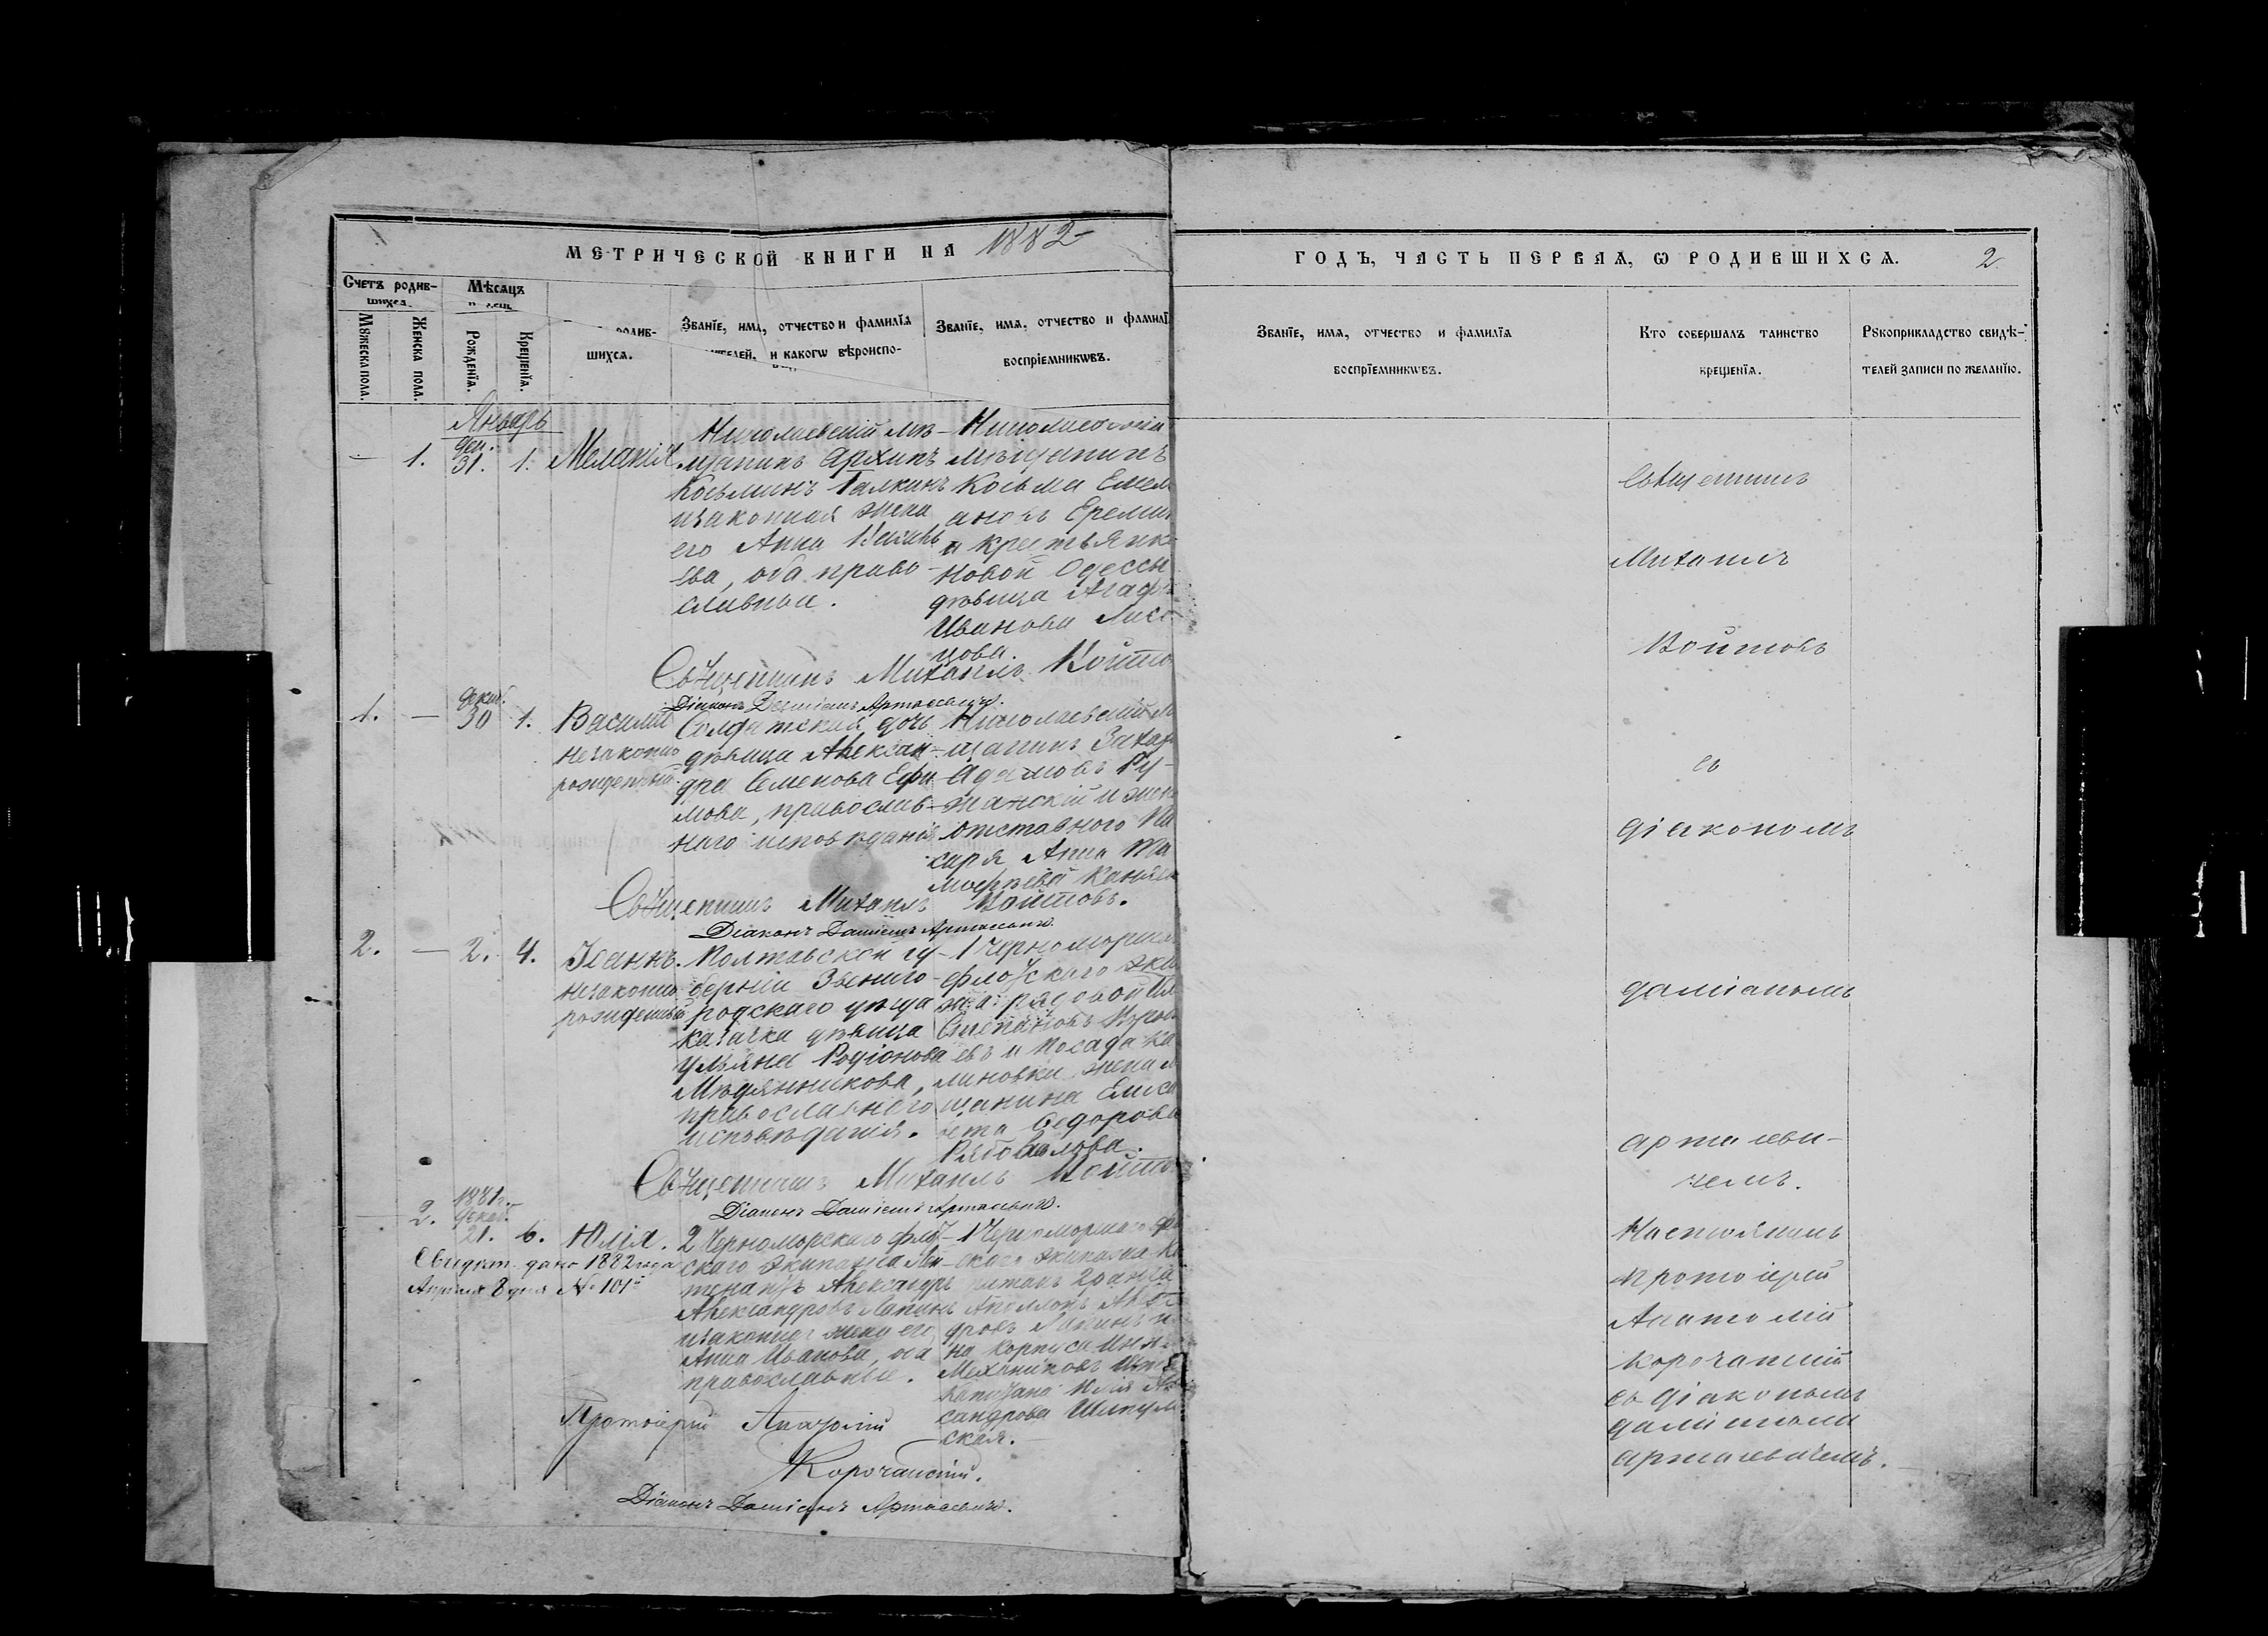 МЕТРИЧЕСКОЙ КНИГИ НА 1882
ГОДЪ, ЧАСТЬ ПЕРВАЯ, Ѡ РОДИВШИХСѦ. 2
Счетъ родив-
шихсѧ.
Мѣсѧцъ
Мꙋжеска пола.
Женска пола.
Рожденїѧ.
Крещенїѧ.
родив-
шихсѧ.
Званїе, имѧ, отчество и фамилїѧ
и какогѡ вѣроиспо-
Званїе, имѧ, отчество и фамилї
воспрїемникѡвъ.
Званїе, имѧ, отчество и фамилїѧ
воспрїемникѡвъ.
Кто совершалъ таинство
крещенїѧ.
Рꙋкоприкладство свидѣ-
телей записи по желанїю.
Январь
— 1. Дек. 31. 1. Меланія
Николаевскій мѣ-
щанинъ Архипъ
Косьминъ Галкинъ
и законная жена
его Анна
ева, оба право-
славные.
Николаевскій
мѣщанинъ
Косьма Емел
ановъ Еремин
и крестьянк
Новой Одессы
дѣвица Агаф
Иванова Лисе
цова.
Священникъ
Михаилъ
Войтовъ
съ
діакономъ
Даміаномъ
Артасеви-
чемъ.
Священникъ Михаилъ Войто
Діаконъ Даміанъ Артасевичъ.
1. — Декаб. 30 1. Василій
незаконно
рожденный.
Солдатская дочь
дѣвица Алексан-
дра Семенова Ефи-
мова, православ-
наго исповѣданія
Николаевскій м
щанинъ Захар
Адамовъ Ру-
жанскій и жен
отставного Пи
саря Анна
Священникъ Михаилъ Войтовъ.
Діаконъ Даміанъ Артасевичъ.
2. — 2. 4. Іоаннъ.
незаконно
рожденный
Полтавской гу-
берніи Звениго-
родскаго уѣзда
казачка дѣвица
Ульяна Родіонова
Мѣдянникова,
православнаго
исповѣданія.
1 Черноморска
флотскаго эки
пажа рядовой
Степановъ
евъ и посада Ка
линовки жена м
щанина Елиса
вета Ѳедорова
Рябовалова.
Священникъ Михаилъ Войто
Діаконъ Даміанъ Артасевичъ.
— 2. 1881г. Декаб. 21. 6. Юлія.
Свидѣт. дано 1882 года
Апрѣля 8 дня № 101й
2 Черноморскаго флот-
скаго экипажа Лей-
тенантъ Александръ
Александровъ Лапинъ
и законная жена его
Анна Иванова, оба
православные.
1 Черноморскаго фло
скаго экипажа Ка
питанъ 2 ранга
Аполлонъ Алекса
дровъ Лапинъ и
на корпуса инж
Механиковъ
Юлія Ал
сандрова
ская.
Настоятель
Протоіерей
Анатолій
Корочанскій
съ діакономъ
Даміаномъ
Артасевичемъ.
Протоіерей Анатолій
Корочанскій.
Діаконъ Даміанъ Артасевичъ.